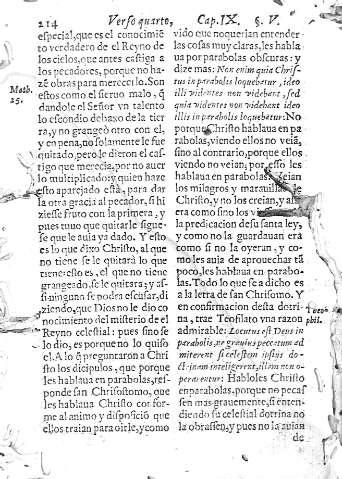 214 Verso quarto, Cap.IX. §. V.
especial, que es el conocimiẽ
to verdadero de el Reyno de
los cielos, que antes castiga a
los pecadores, porque no ha-
zẽ obras para merecerlo. Son
estos como el sieruo malo, q̃
dandole el Señor vn talento
lo escondio debaxo de la tier
ra, y no grangeò otro con el,
y en pena, no solamente le fue
quitado, pero le dieron el cas-
tigo que merecia, por no auer
lo multiplicado: y quien haze
esto aparejado està, para dar
la otra gracia al pecador, si hi
ziesse fruto con la primera, y
pues tuuo que quitarle sigue-
se que le auia ya dado. Y esto
es lo que dixo Christo, al que
no tiene se le quitarà lo que
tiene: esto es, el que no tiene
grangeado, se le quitarà; y as-
si ninguno se podra escusar, di
ziendo, que Dios no le dio co
nocimiento del misterio de el
Reyno celestial: pues sino se
lo dio, es porque no lo quiso
el. A lo q̃ preguntaron a Chri
sto los dicipulos, que porque
les hablaua en parabolas, res-
ponde san Chrisostomo, que
les hablaua Christo cõforme
me al animo y disposiciõ que
ellos traian para oirle, y como
Math.
25.
vido que no querian entender
las cosas muy claras, les habla
ua por parabolas obscuras: y
dize mas: Non enim quia Chris-
tus in parabolis loquebatur, ideo
illi videntes non videbant, sed
quia videntes non videbant ideo
illis in parabolis loquebatur: No
porque Christo hablaua en pa
rabolas, viendo ellos no veiã,
sino al contrario, porque ellos
viendo no veian; por esso les
hablaua en parabolas. Veian
los milagros y marauillas de
Christo, y no los creian, y assi
era como sino los
la predicacion de su santa ley,
y como no la guardauan era
como si no la oyerun, y co-
mo les auia de aprouechar tã
poco, les hablaua en parabo-
las. Todo lo que se a dicho es
a la letra de san Chrisostomo. Y
en confirmacion desta dotri-
na, trae Teofilato vna razon
admirable: Locutus est Deus in
parabolis, ne grauius peccatum ad
mitterent si celestem ipsius do-
ctrinam inteligerent, illam non o-
perarentur: Habloles Christo
en parabolas, porque no pecas
sen mas grauemente, si enten-
diendo su celestial dotrina no
la obrassen, y pues no la auian
Teo
phil.
de